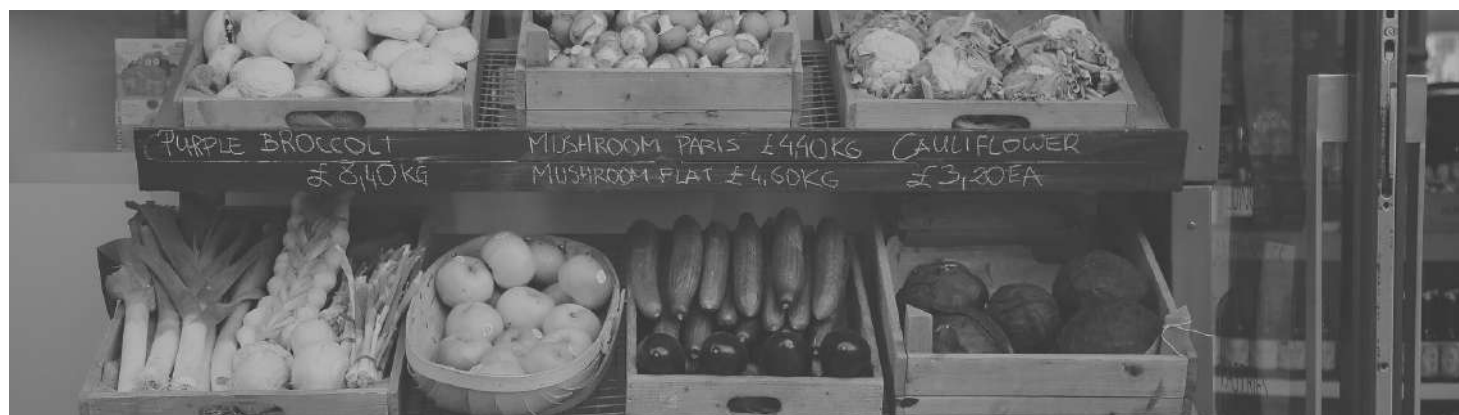 PURPLE BROCCOLI
£8,40KG
MUSHROOM PARIS £4,40KG
MUSHROOM FLAT £4,60KG
CAULIFLOWER
£3,20EA